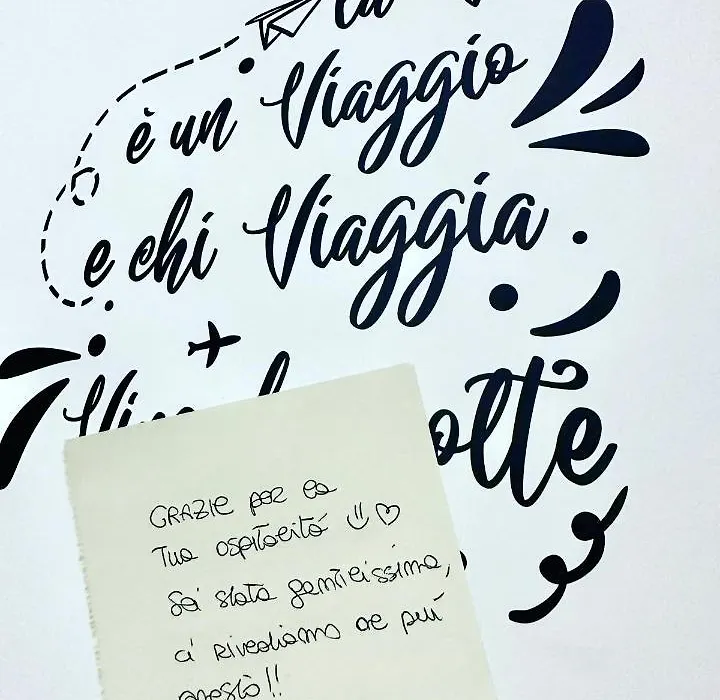 la
è un Viaggio
e chi Viaggia
olte
GRAZIE per la
Tua ospitalità
Sei stata gentilissima,
ci rivediamo al più
presto!!